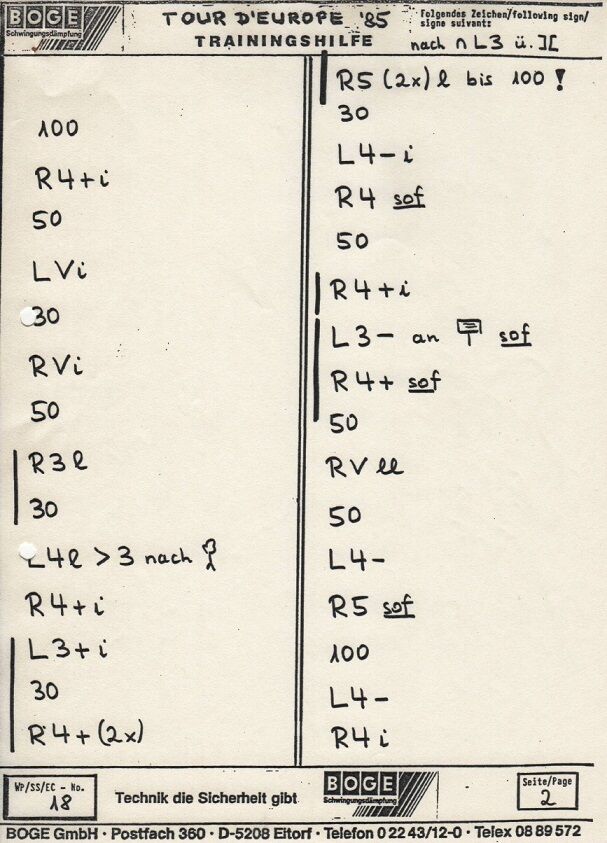 BOGE
Schwingungsdämpfung
TOUR D'EUROPE '85
TRAININGSHILFE
Folgendes Zeichen/following sign/
signe suivante
nach ∩ L3 ü. ][
100
R4+i
50
LVi
30
RVi
50
R3l
30
L4l >3 nach
R4+i
L3+i
30
R4+(2x)
R5 (2x) l bis 100 !
30
L4-i
R4 sof
50
R4+i
L3- an sof
R4+ sof
50
RV ll
50
L4-
R5 sof
100
L4-
R4 i
WP/SS/EC - No.
18
Technik die Sicherheit gibt
BOGE
Schwingungsdämpfung
Seite/Page
2
BOGE GmbH · Postfach 360 · D-5208 Eitorf · Telefon 0 22 43/12-0 · Telex 08 89 572